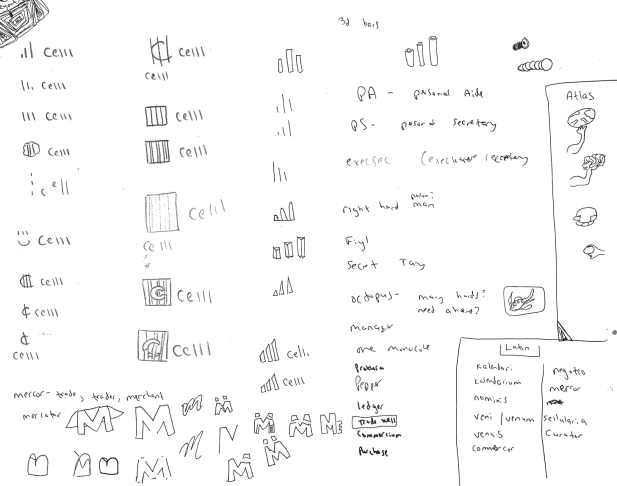 .ıl Cell
Cell
cell
3d bars
Cell
cell
Cell
cell
Cell
cell
Cell
cell
Cell
cell
Cell
cell
cell
cell
cell
cell
cell
cell
PA - personal Aide
PS - personal secretary
execsec (executive secretary
right hand man
Secret
octopus - many hands?
need a hand?
one
Pepper
ledger
Trade well
Commercium
Purchase
Atlas
Latin
Kalendari
Calendarium
nomiks
veni / venum
venus
commercor
negotio
mercor
sellularia
Curator
mercor - trade, trader, merchant
mercator
M M m M M M M